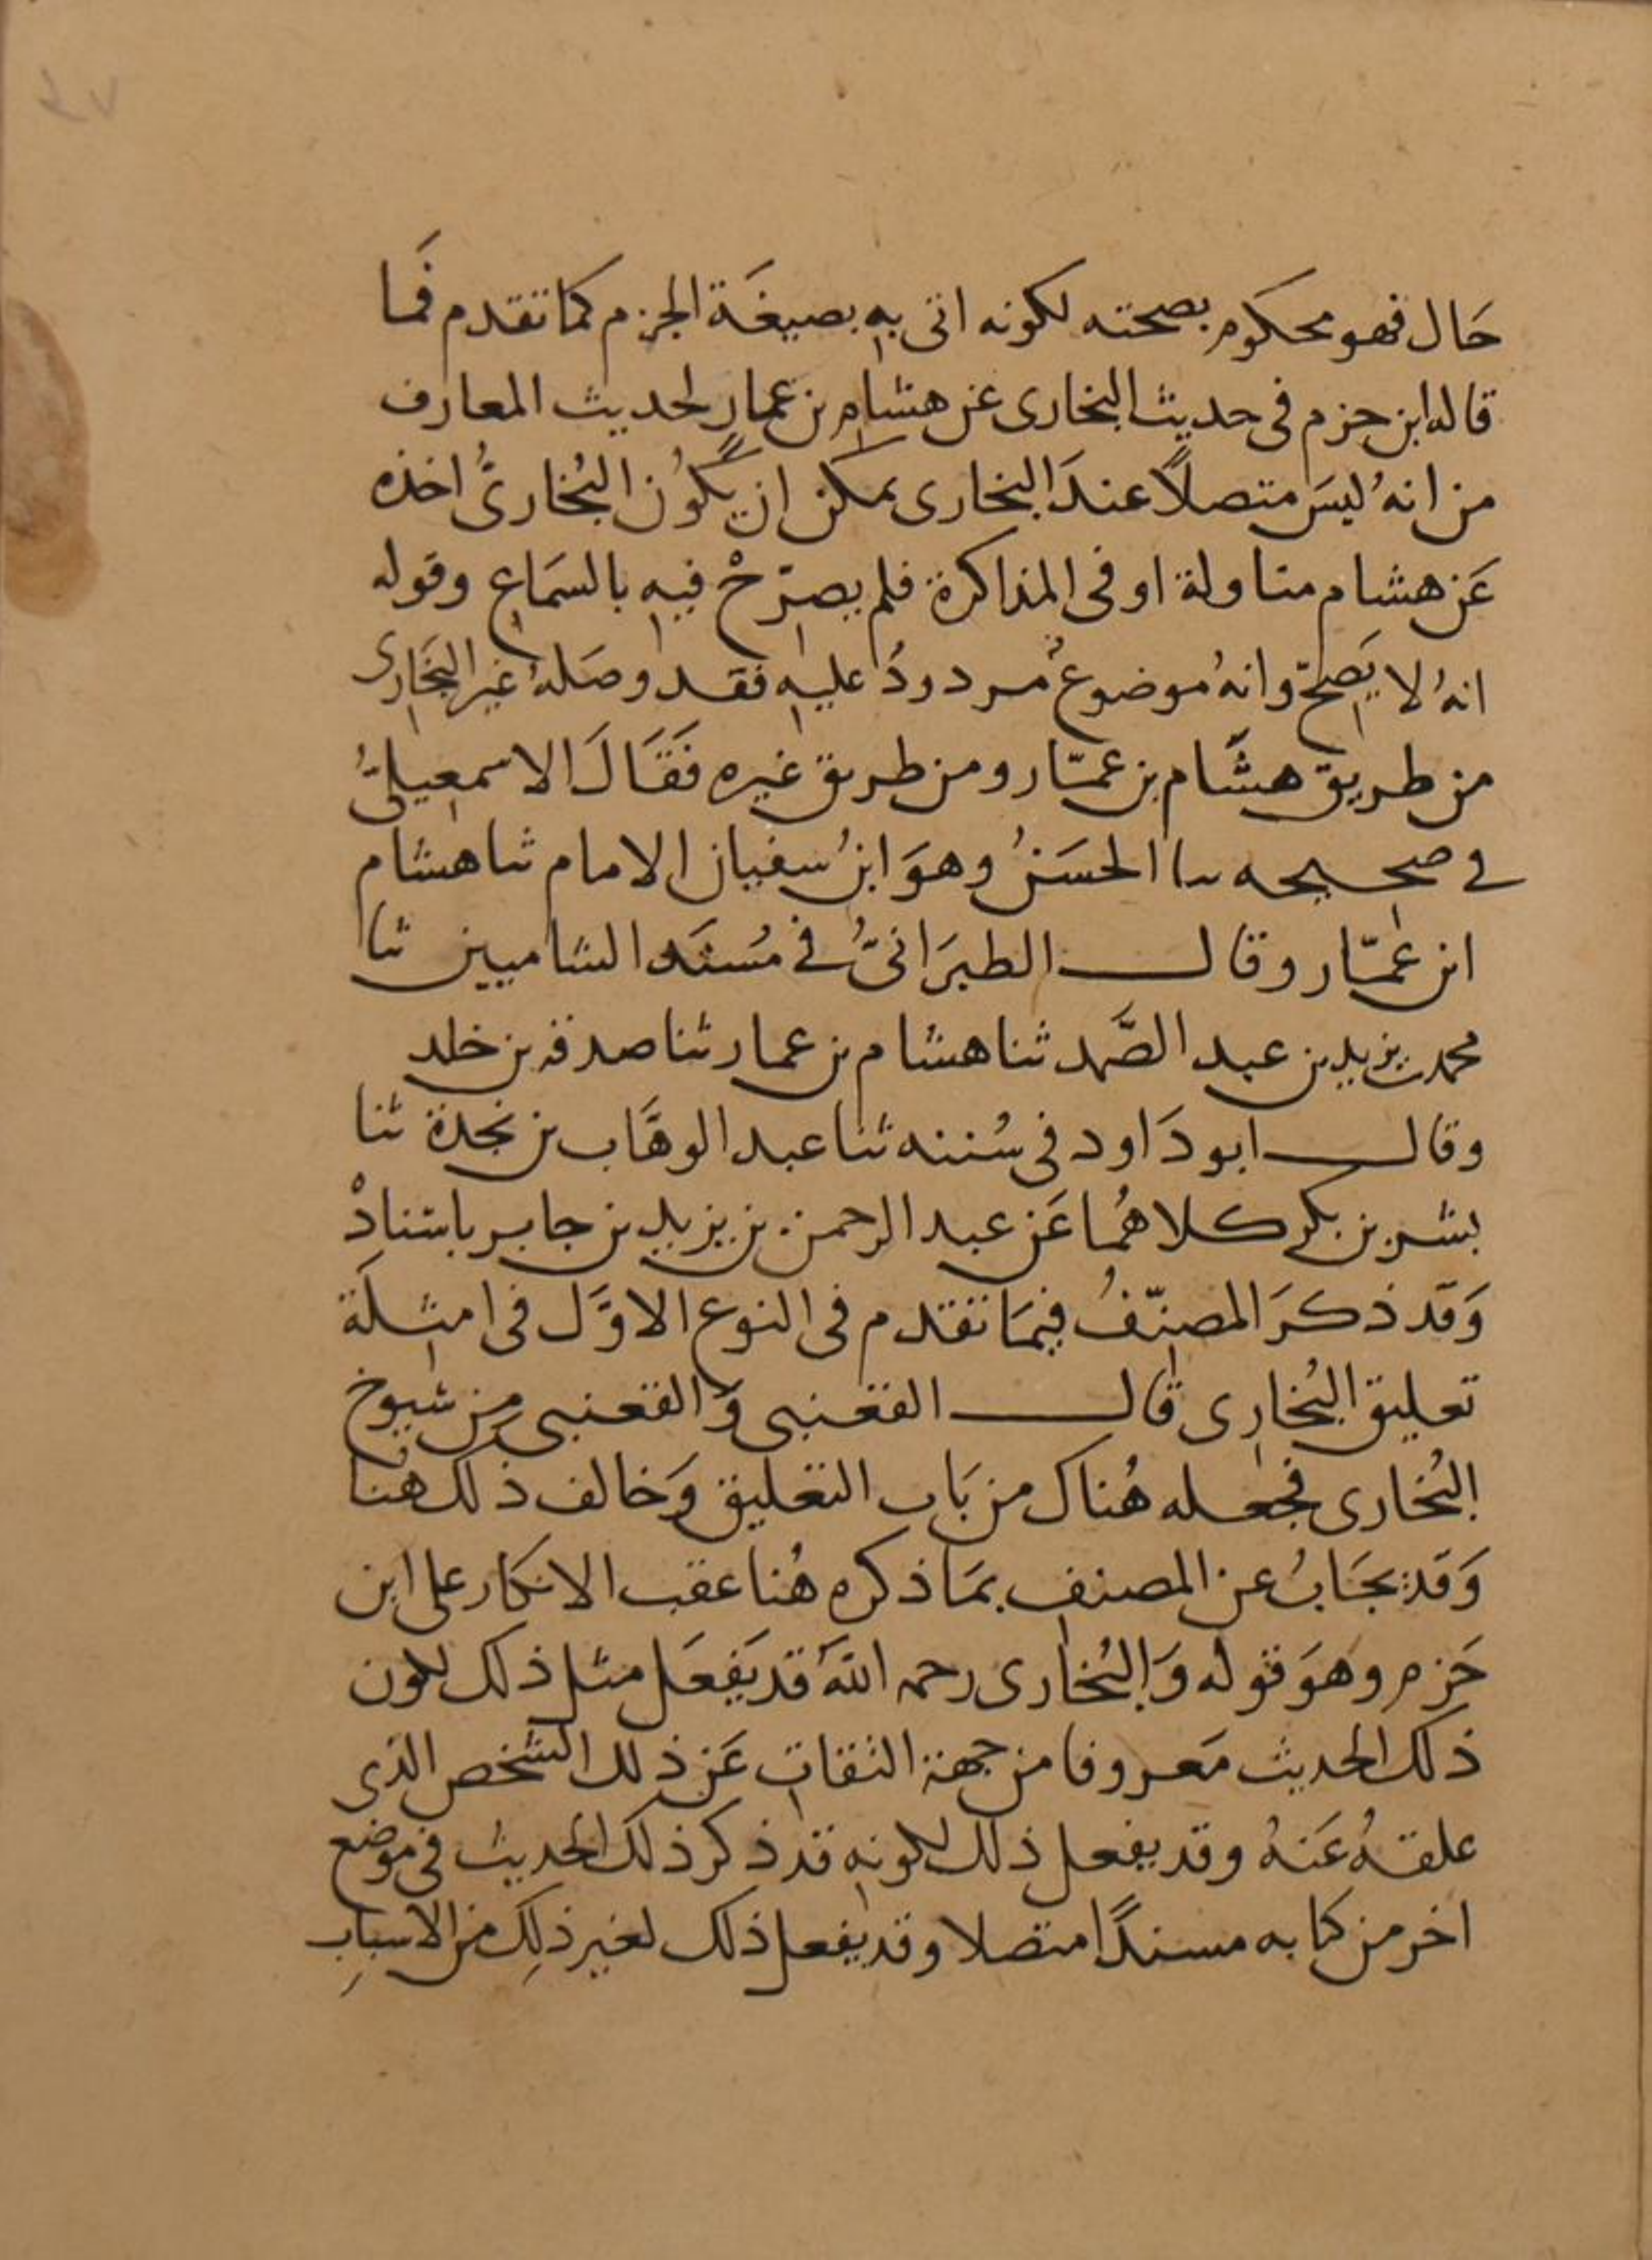 حَال فهو محكوم بصحته لكونه اتى به بصيغَة الجزم كما تقدم فمَا
قاله ابن حزم فى حديث البخارى عن هشام بن عمار لحديث المعازف
من انهُ ليسَ متصلاً عندَ البخارى يمكن ان يكُون البُخارىُّ اخذه
عَن هشام مناولة او فى المذاكرة فلم يصرّحْ فيه بالسمَاع وقوله
انهُ لا يَصحّ وانهُ موضوعٌ مردودُ عليه فقد وصَلهُ غير البخَارى
من طريق هشَام بن عمّار ومن طريق غيره فَقَالَ الاسمعيلىُّ
فى صحيحه ثنا الحسَنُ وهوَ ابنُ سفيان الامام ثنا هشام
ابن عمّار وقال الطبرَانىُّ فى مسُنَد الشاميين ثنا
محمد بن يزيد بن عبد الصَّمد ثنا هشام بن عمار ثنا صدقه بن خلد
وقال ابو دَاود فى سُننه ثنا عبد الوهَّاب بن نجدة ثنا
بشر بن بكر كلاهُمَا عَن عبد الرحمن بن يزيد بن جابر باسنادْ
وَقَد ذكَرَ المصنّفُ فيمَا تقدم فى النوع الاوَّل فى امثلَة
تعليق البُخارى قال القعنبى وَالقعنبى من شيوخ
البُخارى فجعله هُناك من بَاب التعليق وَخالف ذلك هنا
وَقَد يجَابُ عن المصنف بمَا ذكره هُنا عقب الانكار على ابن
حَزم وهوَ قوله وَالبُخارى رحمه اللهُ قد يَفعَل مثل ذلك لكون
ذلك الحديث مَعروفا من جهة الثقات عَن ذلك الشخص الذى
علقهُ عَنهُ وقد يفعل ذلك لكونه قد ذكر ذلك الحديث فى موضع
اخر من كتابه مسندًا متصلا وقد يفعل ذلك لغير ذلِكَ من الاسبابِ